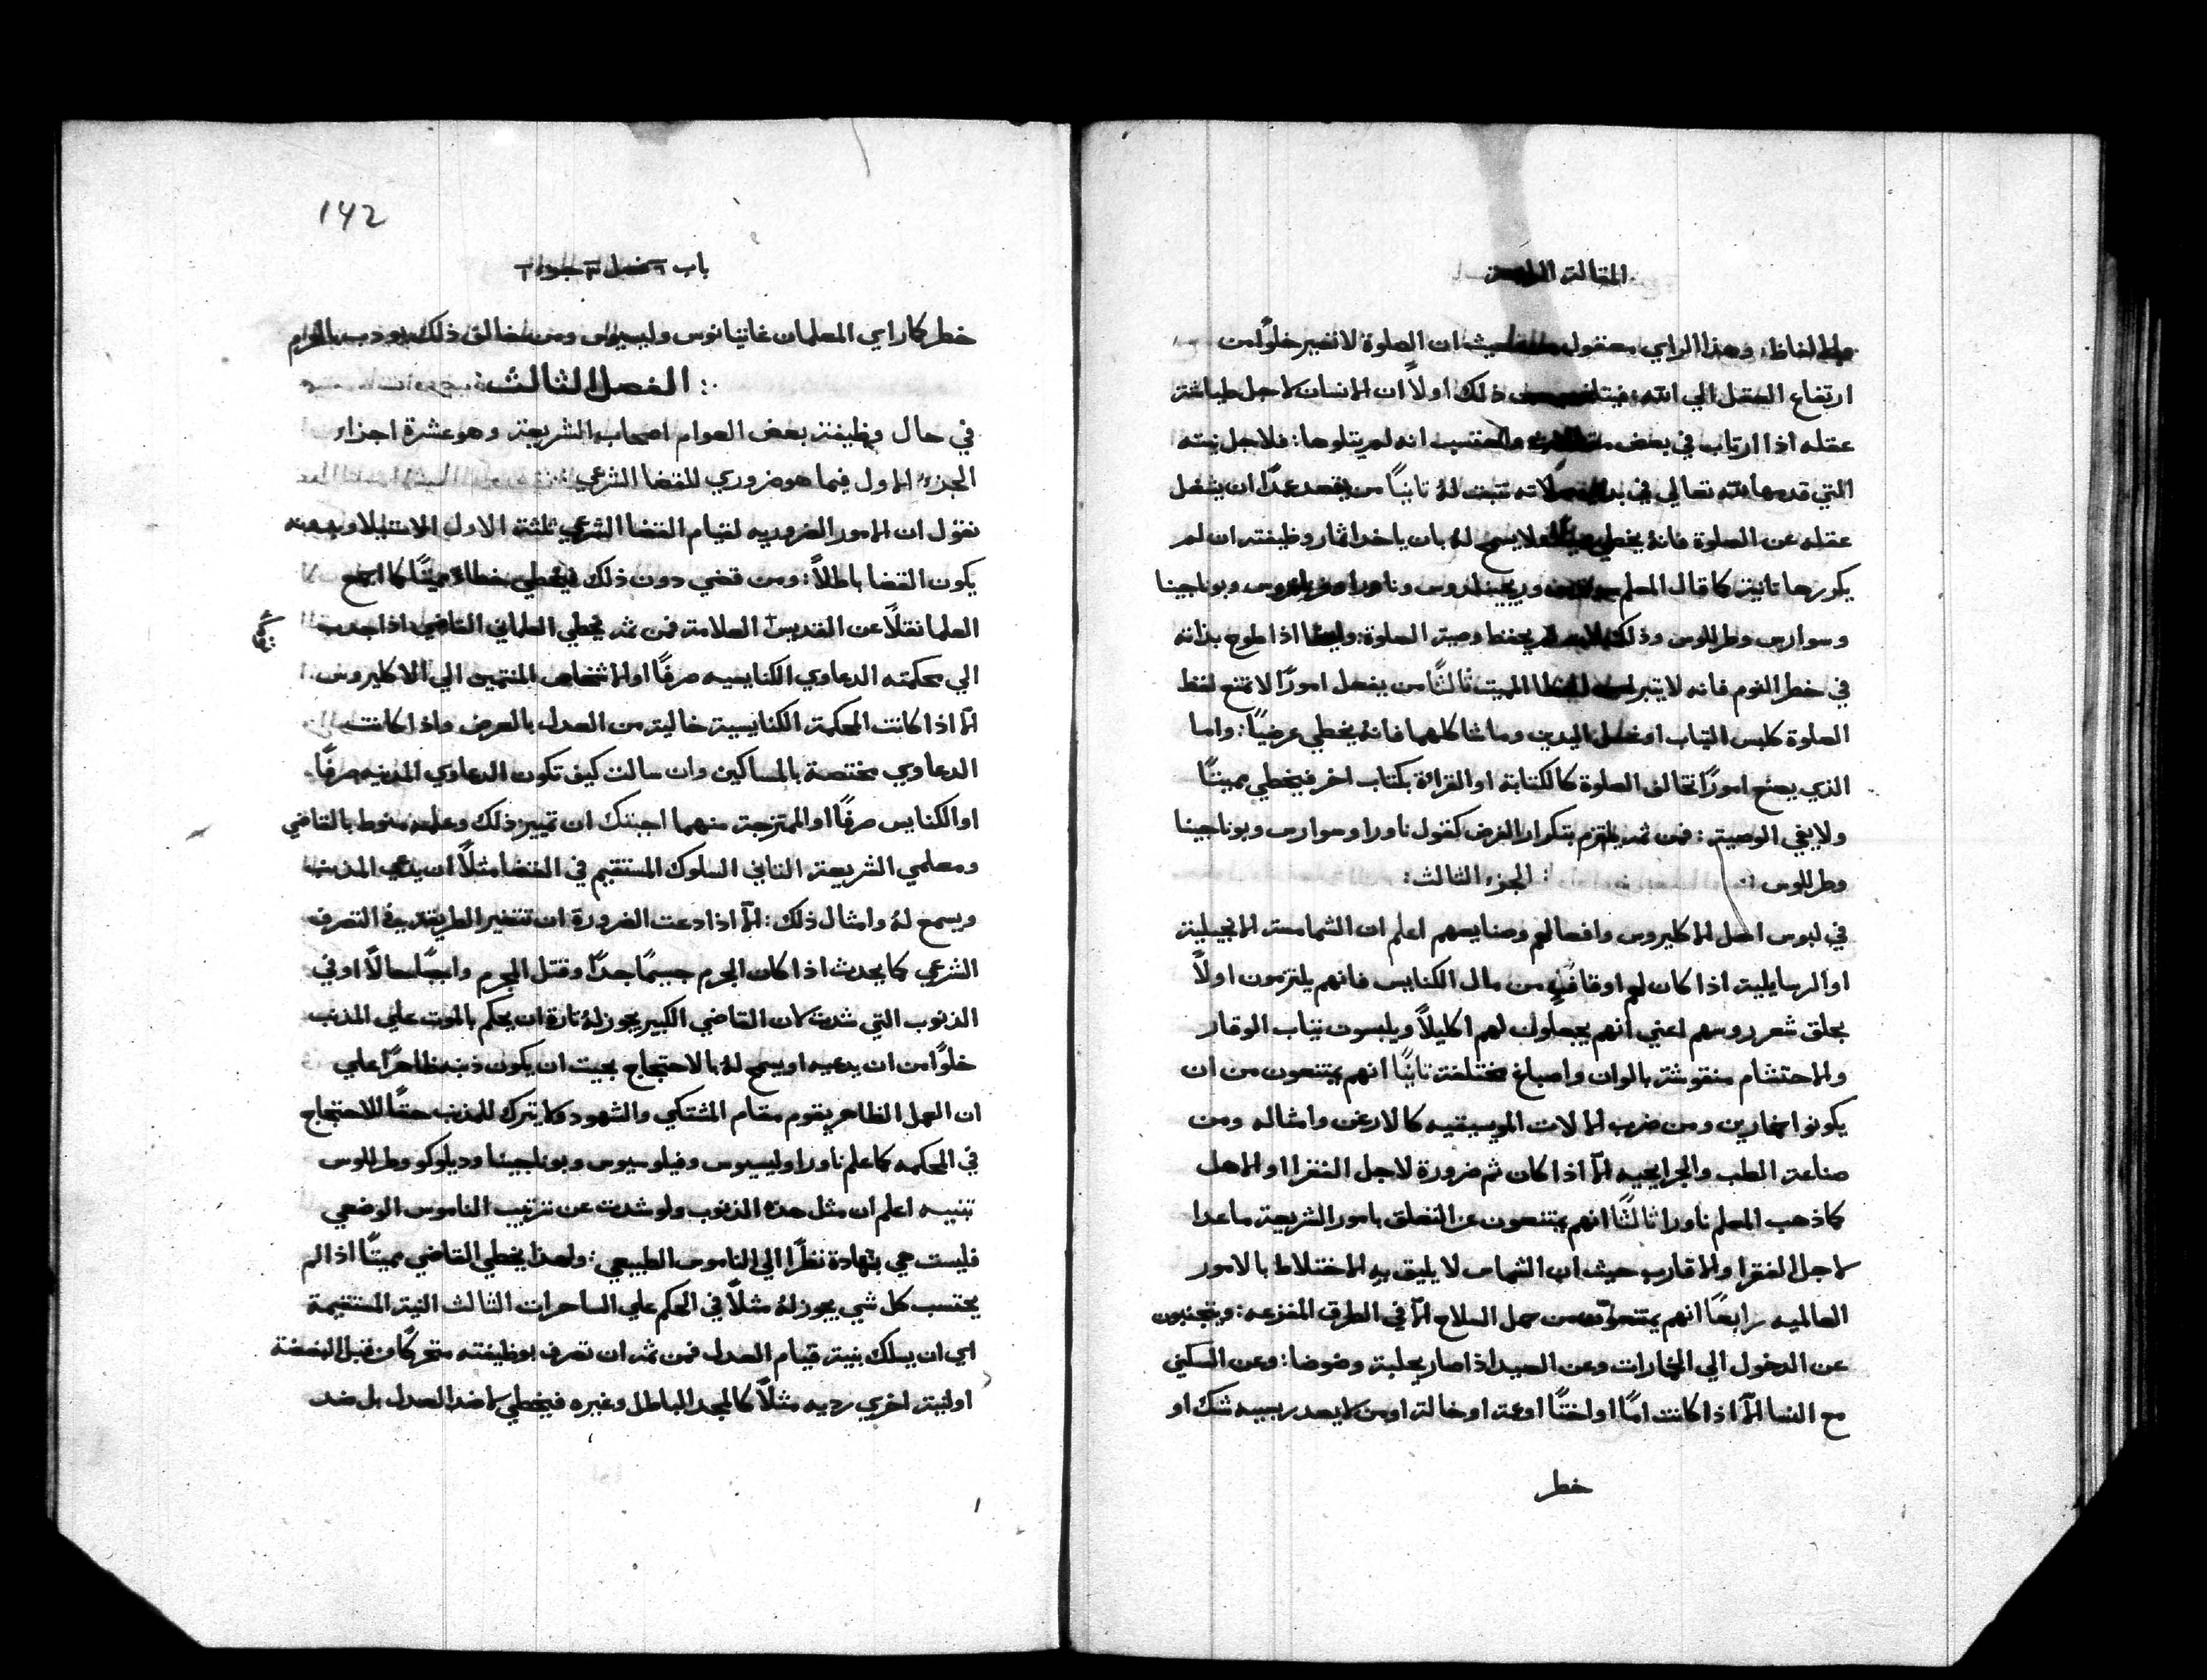 المقالة الرابعة
الالفاظ: وهذا الراي معقول حيث ان الصلوة لا تصير خلوًا من
ارتفاع العقل الي الله: ذلك اولاً ان الانسان لاجل طياشة
عقله اذا ارتاب في بعض واحتسب انه لم يتلوها: فلاجل نيته
التي قدمها لله تعالي في صلاته تثبت لهُ ثانيًا من يقصد عمدًا ان يشغل
عقله عن الصلوة فانهُ يخطي ولا يسمح لهُ بان ياخذ اثمار وظيفته ان لم
يكررها ثانية كما قال المعلم وريجينلدوس وناورا وبوناجينا
وسوارس وطرللوس وذلك لانه لم يحفظ وصية الصلوة: وايضًا اذا طوح بذاته
في خطر النوم فانه لا يتبرا من الخطا المميت ثالثًا من يفعل امورًا لا تمنع لفظ
الصلوة كلبس الثياب او غسل اليدين وما شاكلهما فانهُ يخطي عرضيًا: واما
الذي يصنع امورًا تخالف الصلوة كالكتابة او القرائة بكتاب اخر فيخطي مميتًا
ولا يفي الوصية: فمن ثم يلتزم بتكرار الفرض كقول ناورا وسوارس وبوناجينا
وطرللوس: الجزء الثالث:
في لبوس اهل الاكليروس وافعالهم وصنايعهم اعلم ان الشمامسة الانجيلية
او الرسايلية اذا كان لهم اوقاف من مال الكنايس فانهم يلتزمون اولاً
بحلق شعر روسهم اعني انهم يجعلون لهم اكليلاً ويلبسون ثياب الوقار
والاحتشام منقوشة بالوان واصباغ مختلفة ثانيًا انهم يمتنعون من ان
يكونوا خمارين ومن ضرب الالات الموسيقيه كالارغن وامثاله ومن
صناعة الطب والجرايحيه الّا اذا كان ثم ضرورة لاجل الفقرا او الاهل
كما ذهب المعلم ناورا ثالثًا انهم يمتنعون عن التعلق بامور الشريعة ما عدا
لاجل الفقرا والاقارب حيث ان الشماس لا يليق به الاختلاط بالامور
العالميه رابعًا انهم يمتنعون من حمل السلاح الّا في الطرق المفزعه: ويتجنبون
عن الدخول الي الخمارات وعن الصيد اذا صار بجلبة وضوضا: وعن السكني
مع النسا الّا اذا كانت امًا او اختًا او عمة او خالة او من لا يصدر بسببه شك او
خطر
142
باب ٦ فصل ٣ جزء ١
خطر كما راي المعلمان غاتيانوس وليسيوس ومن خالف ذلك يودب بالحرام
: الفصل الثالث:
في حال وظيفة بعض العوام اصحاب الشريعة وهو عشرة اجزاء
الجزء الاول فيما هو ضروري للقضا الشرعي:
نقول ان الامور الضروريه لقيام القضا الشرعي ثلثة الاول الاستيلا وبدونه
يكون القضا باطلاً: ومن قضي دون ذلك فيخطي خطاءً مميتًا كما اجمع
العلما نقلاً عن القديس العلامة فمن ثم يخطي العلماني القاضي اذا جذب
الي محكمته الدعاوي الكنايسيه صرفًا او الاشخاص المنتمين الي الاكليروس
الّا اذا كانت المحكمة الكنايسية خالية من العدل بالعرض واذا كانت
الدعاوي مختصة بالمساكين وان سالت كيف تكون الدعاوي المدنيه صرفًا
او الكنايس صرفًا او الممتزجة منهما اجبتك ان تمييز ذلك وعلمه منوط بالقاضي
ومعلمي الشريعة الثاني السلوك المستقيم في القضا مثلاً ان يدعي المذنب
ويسمع لهُ وامثال ذلك: الّا اذا دعت الضرورة ان تتغير الطريقة في التصرف
الشرعي كما يحدث اذا كان الجرم جسيمًا جدًا وقتل المجرم واجبًا حالاً او في
الذنوب التي شدت لان القاضي الكبير يجوز لهُ تارة ان يحكم بالموت علي المذنب
خلوًا من ان يدعيه او يسمح لهُ بالاحتجاج بحيث ان يكون ذنبه ظاهرًا علي
ان العمل الظاهر يقوم مقام المشتكي والشهود ولا يترك للمذنب حقًا للاحتجاج
في المحكمه كما علم ناورا وليسيوس وفيلوسيوس وبوناجينا وديلوكو وطرللوس
تنبيه اعلم ان مثل هذه الذنوب ولو شدت عن ترتيب الناموس الوضعي
فليست هي بشهادة نظرًا الي الناموس الطبيعي: ولهذا يخطي القاضي مميتًا اذا لم
يحتسب كل شي يجوز لهُ مثلاً في الحكم علي الساحرات الثالث النية المستقيمة
اي ان يسلك بنية قيام العدل فمن ثم ان تصرف بوظيفته متحركًا من قبل البغضة
او لنية اخري رديه مثلاً كالمجد الباطل وغيره فيخطي لا ضد العدل بل ضد